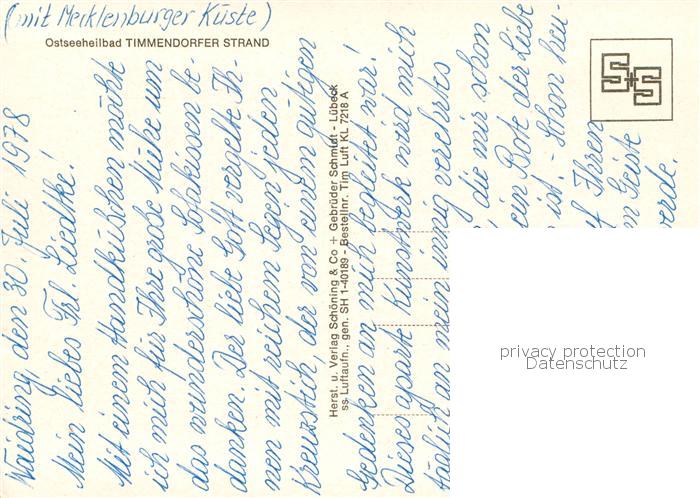 (mit Mecklenburger Küste)
Ostseeheilbad TIMMENDORFER STRAND
Waidring, den 30. Juli 1978
Mein liebes Frl. Liedtke!
Mit einem Handküßchen möchte
ich mich für Ihre große Mühe um
das wunderschöne Sofakissen be-
danken. Der liebe Gott vergelte Ih-
nen mit reichem Segen jeden
Kreuzstich, der von einem gütigen
Gedenken an mich begleitet war!
Dieses aparte Kunstwerk wird mich
täglich an mein innig verehrtes
die mir schon
ein Bote der Liebe
ist. - Schon heu-
f Ihren
m Geiste
werde.
Herst. u. Verlag Schöning & Co + Gebrüder Schmidt - Lübeck
ss. Luftaufn., gen. SH 1-40189 - Bestellnr. Tim Luft KL 7218 A
S+S
privacy protection
Datenschutz